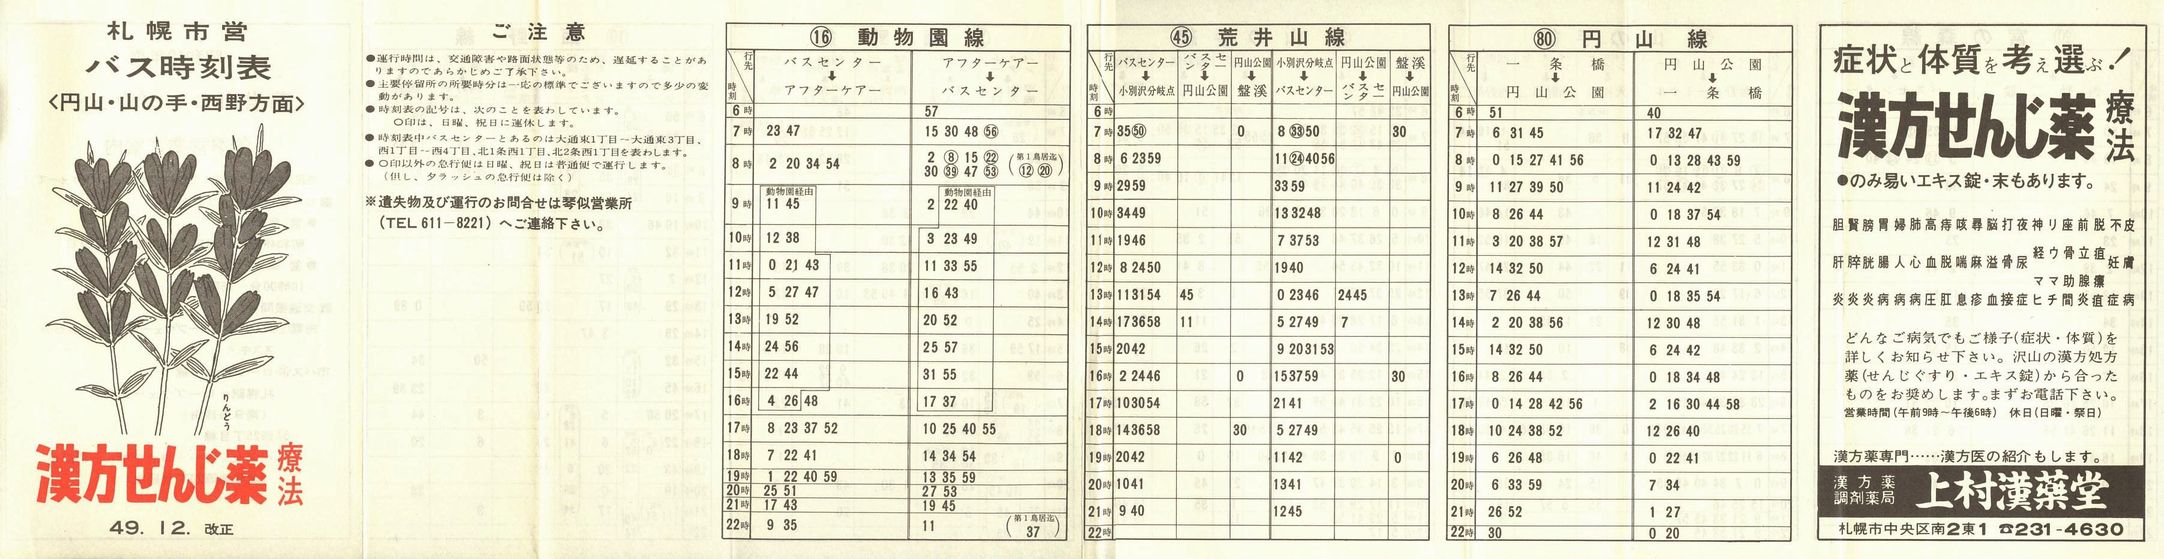 札幌市営
バス時刻表
<円山・山の手・西野方面>
りんどう
漢方せんじ薬 療法
49. 12. 改正
ご注意
●運行時間は、交通障害や路面状態等のため、遅延することがあ
りますのであらかじめご了承下さい。
●主要停留所の所要時分は一応の標準でございますので多少の変
動があります。
●時刻表の記号は、次のことを表わしています。
○印は、日曜、祝日に運休します。
●時刻表中バスセンターとあるのは大通東1丁目～大通東3丁目、
西1丁目～西4丁目、北1条西1丁目、北2条西1丁目を表わします。
●○印以外の急行便は日曜、祝日は普通便で運行します。
(但し、夕ラッシュの急行便は除く)
※遺失物及び運行のお問合せは琴似営業所
(TEL 611-8221) へご連絡下さい。
⑯ 動物園線
行先 時刻 バスセンター ↓ アフターケアー アフターケアー ↓ バスセンター
6時 57
7時 23 47 15 30 48 ㊽
8時 2 20 34 54 2 ⑧ 15 ㉒ 30 ㊴ 47 ㊾ (第1鳥居迄 ⑫ ⑳)
動物園経由 動物園経由
9時 11 45 2 22 40
10時 12 38 3 23 49
11時 0 21 43 11 33 55
12時 5 27 47 16 43
13時 19 52 20 52
14時 24 56 25 57
15時 22 44 31 55
16時 4 26 48 17 37
17時 8 23 37 52 10 25 40 55
18時 7 22 41 14 34 54
19時 1 22 40 59 13 35 59
20時 25 51 27 53
21時 17 43 19 45
22時 9 35 11 (第1鳥居迄 37)
㊺ 荒井山線
行先 時刻 バスセンター ↓ 小別沢分岐点 バスセンター ↓ 円山公園 円山公園 ↓ 盤渓 小別沢分岐点 ↓ バスセンター 円山公園 ↓ バスセンター 盤渓 ↓ 円山公園
6時
7時 35 ㊿ 0 8 ㉝ 50 30
8時 6 23 59 11 ㉔ 40 56
9時 29 59 33 59
10時 34 49 13 32 48
11時 19 46 7 37 53
12時 8 24 50 19 40
13時 11 31 54 45 0 23 46 24 45
14時 17 36 58 11 5 27 49 7
15時 20 42 9 20 31 53
16時 2 24 46 0 15 37 59 30
17時 10 30 54 21 41
18時 14 36 58 30 5 27 49
19時 20 42 11 42 0
20時 10 41 13 41
21時 9 40 12 45
22時
80 円山線
行先 時刻 一条橋 ↓ 円山公園 円山公園 ↓ 一条橋
6時 51 40
7時 6 31 45 17 32 47
8時 0 15 27 41 56 0 13 28 43 59
9時 11 27 39 50 11 24 42
10時 8 26 44 0 18 37 54
11時 3 20 38 57 12 31 48
12時 14 32 50 6 24 41
13時 7 26 44 0 18 35 54
14時 2 20 38 56 12 30 48
15時 14 32 50 6 24 42
16時 8 26 44 0 18 34 48
17時 0 14 28 42 56 2 16 30 44 58
18時 10 24 38 52 12 26 40
19時 6 26 48 0 22 41
20時 6 33 59 7 34
21時 26 52 1 27
22時 30 0 20
症状と体質を考え選ぶ！
漢方せんじ薬 療法
●のみ易いエキス錠・末もあります。
胆賢膀胃婦肺高痔咳尋脳打夜神リ座前脱不皮
肝膵胱腸人心血脱喘麻溢骨尿経ウ骨立疽妊膚
ママ助腺癢
炎炎炎病病病圧肛息疹血接症ヒチ間炎疽症病
どんなご病気でもご様子(症状・体質)を
詳しくお知らせ下さい。沢山の漢方処方
薬(せんじぐすり・エキス錠)から合った
ものをお奨めします。まずお電話下さい。
営業時間(午前9時～午後6時) 休日(日曜・祭日)
漢方薬専門……漢方医の紹介もします。
漢方薬調剤薬局 上村漢薬堂
札幌市中央区南2東1 ☎231-4630